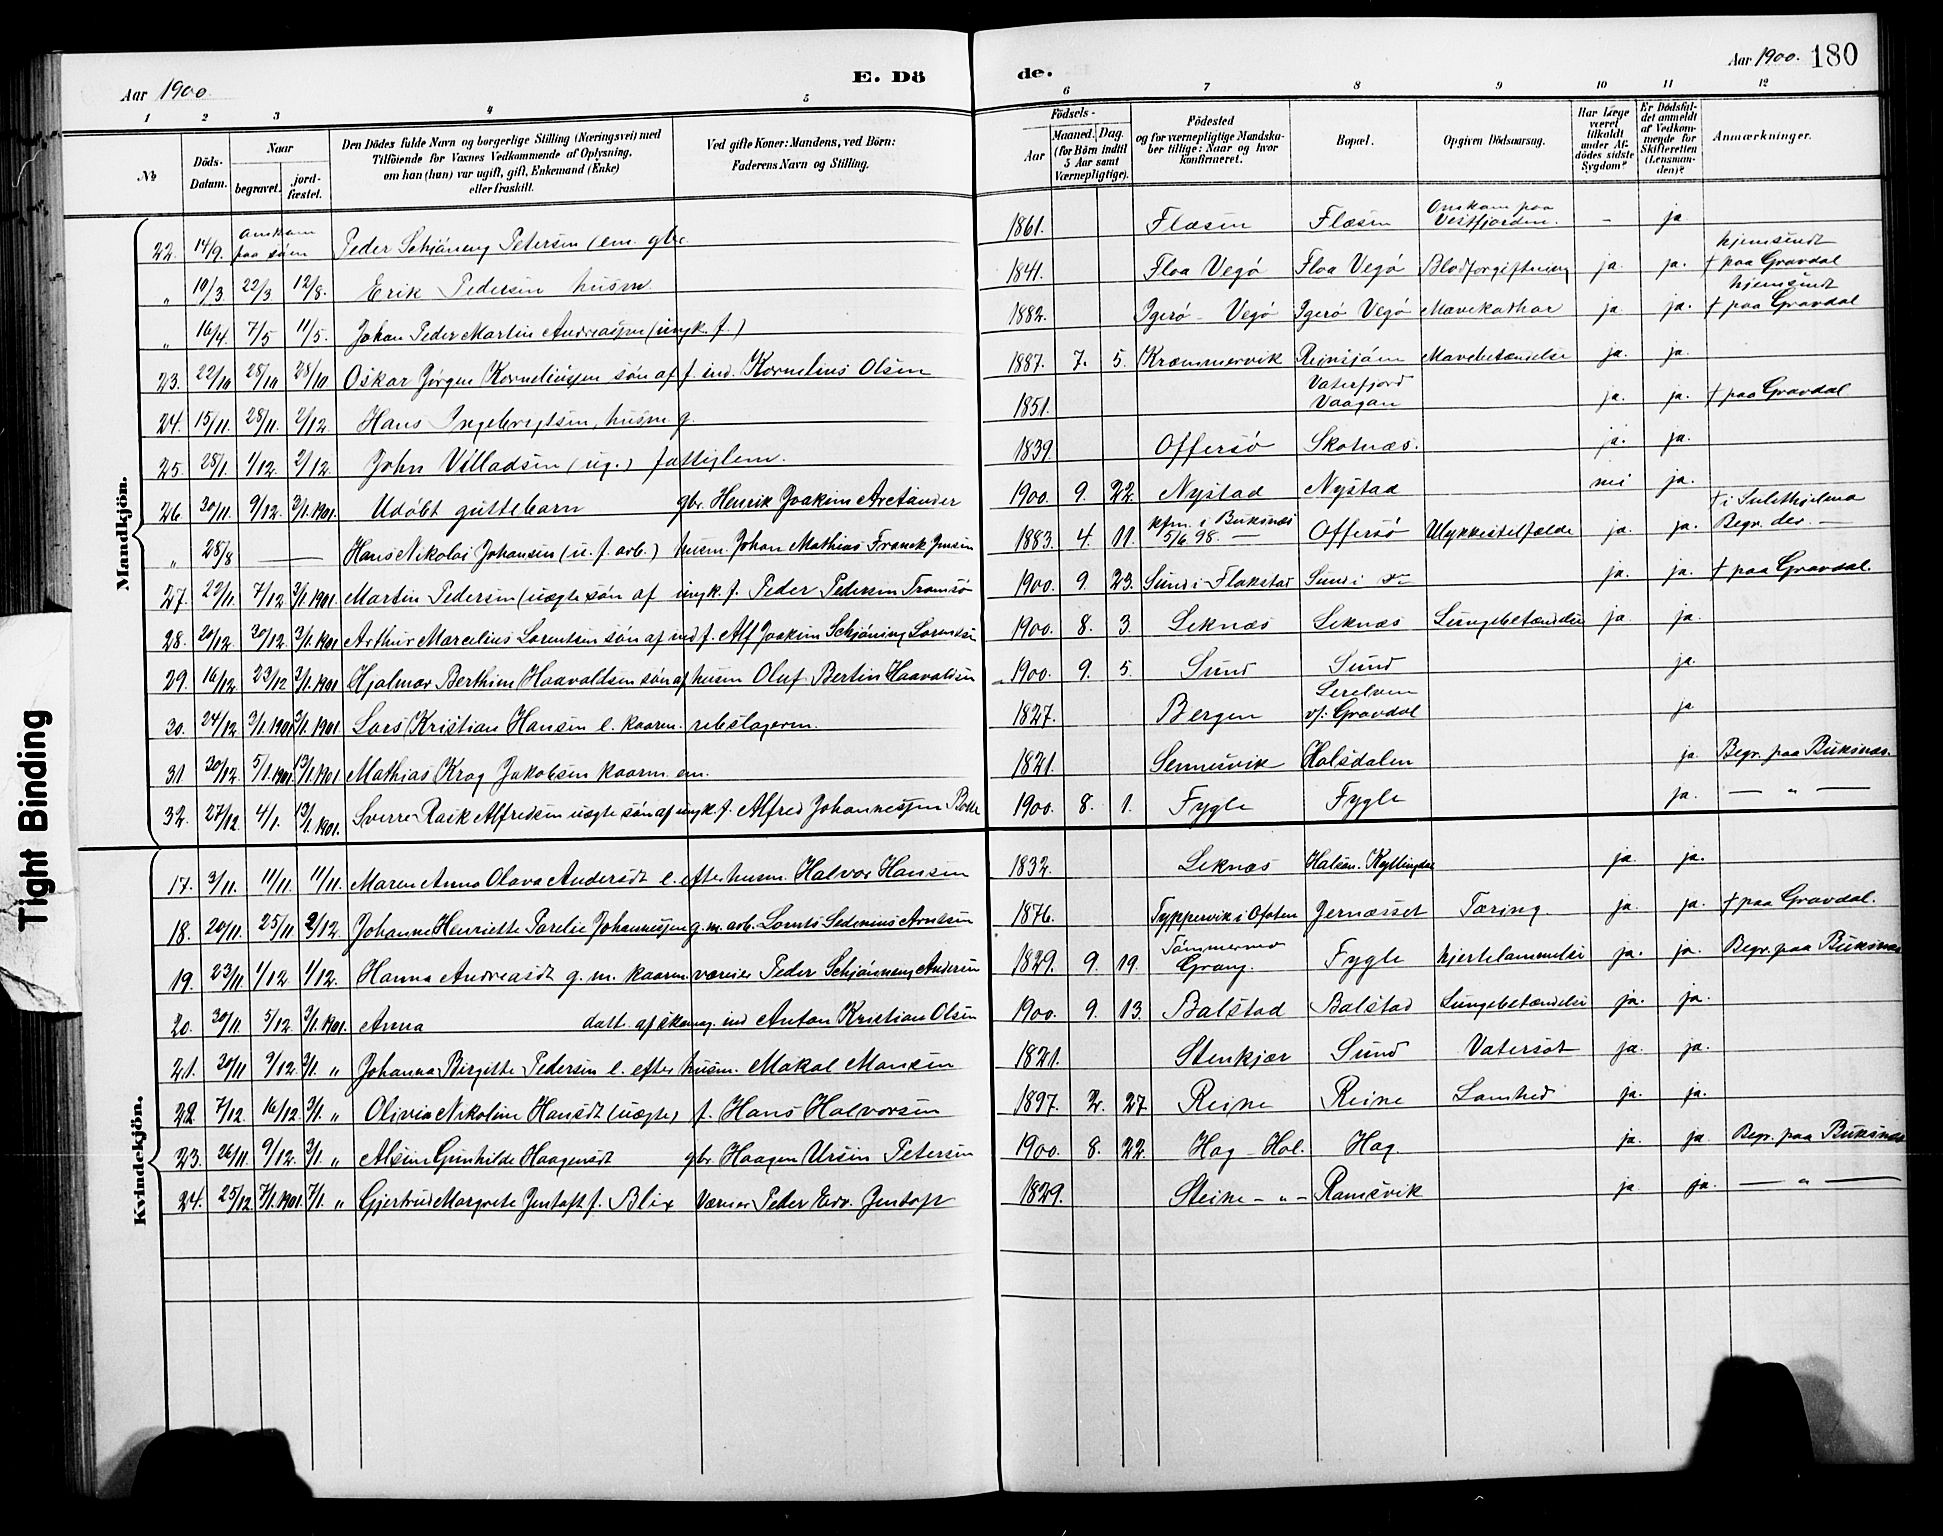 Aar 1900. E. Dö de. Aar 1900. 180
1 2 3 4 5 6 7 8 9 10 11 12
№ Döds-Datum. Naar begravet. jord-fæstet. Den Dödes fulde Navn og borgerlige Stilling (Næringsvei) med Tilföiende for Voxnes Vedkommende af Oplysning, om han (hun) var ugift, gift, Enkemand (Enke) eller fraskilt. Ved gifte Koner: Mandens, ved Börn: Faderens Navn og Stilling. Födsels- Aar Maaned. Dag. (for Börn indtil 5 Aar samt Værnepligtige). Födested og for værnepligtige Mandska-ber tillige: Naar og hvor konfirmeret. Bopæl. Opgiven Dödsaarsag. Har Læge været tilkaldt under Af-dödes sidste Sygdom? Er Dödsfal-det anmeldt af Vedkom-mende for Skifteretten (Lensman-den)? Anmærkninger.
Mandkjön.
22. 14/9. Omkom paa søen Peder Schjöneng Petersen (em. gbr. 1861. Flæsen Flæsen Omkom paa Vestfjorden. - ja
" 10/3. 22/3 12/8. Erik Pedersen husm 1841. Floa Vegö Floa Vegö Blodforgiftning ja. ja. hjemsendt † paa Gravdal
" 16/4. 7/5 11/5. Johan Peder Martin Andreassen (ungk. f.) 1882. Igerö - Vegö Igerö Vegö Mavekathar ja. ja. hjemsendt † paa Gravdal
23. 22/10 28/10 28/10 Oskar Jörgen Korneliussen sön af f. ind. Kornelius Olsen 1887. 7. 5. Kræmmervik Mavebetændelse ja. ja.
24. 15/11. 28/11. 2/12. Hans Ingebrigtsen, husm. g. 1851. Vaterfjord Vaagan ja. ja. † paa Gravdal
25. 28/1. 1/12. 2/12. John Villadsen (ug.) fattiglem. 1839. Offersö Skotnæs. ja. ja.
26 30/11. 9/12. 3/1. 1901. Udöbt guttebarn gbr. Henrik Joakim Arctander 1900. 9. 22. Nystad Nystad nei ja.
" 28/8 — Hans Nikolai Johansen (u. f. arb.) husm. Johan Mathias Franck Jensen 1883. 4. 11. kfm. i Buksnæs 5/6 98. — Offersö Ulykkestilfælde ja. ja. † i Sulithjelma Begr. der. —
27. 22/11. 7/12 3/1. 1901 Martin Pedersen (uægte sön af ungk. f. Peder Pedersen Tromsö 1900. 9. 23. Sund i Flakstad Sund i do ja. ja. † paa Gravdal.
28. 20/12. 30/12. 3/1. 1901 Arthur Marcelius Lorentsen sön af ind f. Alf Joakim Schjöning Lorentsen 1900. 8. 3. Leknæs Leknæs Lungebetændelse ja ja.
29. 16/12. 23/12 3/1. 1901 Hjalmar Berthin Haavaldsen sön af husm Oluf Bertin Haavaldsen 1900. 9. 5. Sund Sund ja.
30. 24/12. 3/1. 1901 3/1. 1901 Lars Kristian Hansen e. kaarm. rebslageren. 1827. Bergen v/: Gravdal ja
31 30/12. 5/1. 1901 13/1. 1901 Mathias Krog Jakobsen kaarm. em. 1821. Sennesvik Holsdalen ja. Begr. paa Buksnæs.
32. 27/12. 4/1. 13/1. 1901. Sverre Raik Alfredsen uægte sön af ungk. f. Alfred Johannessen 1900. 8. 1. Fygle Fygle ja. — " —
Kvindekjön.
17. 3/11. 11/11. 11/11. Maren Anna Olava Andersdt e. efter husm. Halvor Hansen 1832. Leknæs ja. ja.
18. 20/11. 25/11 2/12. Johanne Henriette Parelie Johannessen g. m. arb. Lornts Sedenius Arntsen 1876. i Ofoten Jernæsset Tæring. ja. ja. † paa Gravdal.
19. 23/11 1/12. 1/12. Hanna Andreasdt g. m. kaarm. væreier Peder Schjönneng Andersen 1829. 9. 19. Fygle hjertelammelse ja. ja. Begr. paa Buksnæs
20. 30/11. 5/12. 3/1. 1901. Anna datt. af skomag. ind Anton Kristian Olsen 1900. 9. 13. Balstad Balstad Lungebetændelse ja. ja.
21. 30/11 9/12. 3/1. " Johanna Birgitte Pedersen e. efter husm. Mikal Monsen 1821. Stenkjær Sund Vatersot ja. ja.
22. 7/12. 16/12. 3/1. " Olivia Nikoline Hansdt (uægte) f. Hans Halvorsen 1897. 2. 27. Reine Reine ja. ja.
23. 26/11. 9/12. 3/1. " Alsine Gunhilde Haagensdt gbr. Haagen Ursin Petersen 1900. 8. 22. Hag - Hol. Hag. ja. ja. Begr. paa Buksnæs
24. 25/12. 7/1. 1901. 7/1. " Gjertrud Margrete Jentoft f. Blix Værmer Peder Edv. Jentoft 1829. Steine - " - Ramsvik ja ja. — " —
Tight Binding